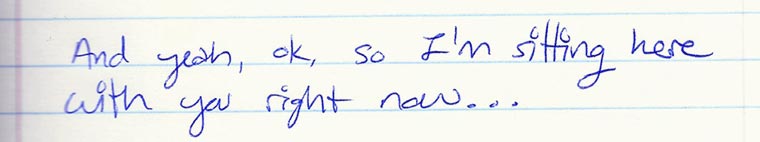 And yeah, ok, so I'm sitting here
with you right now...